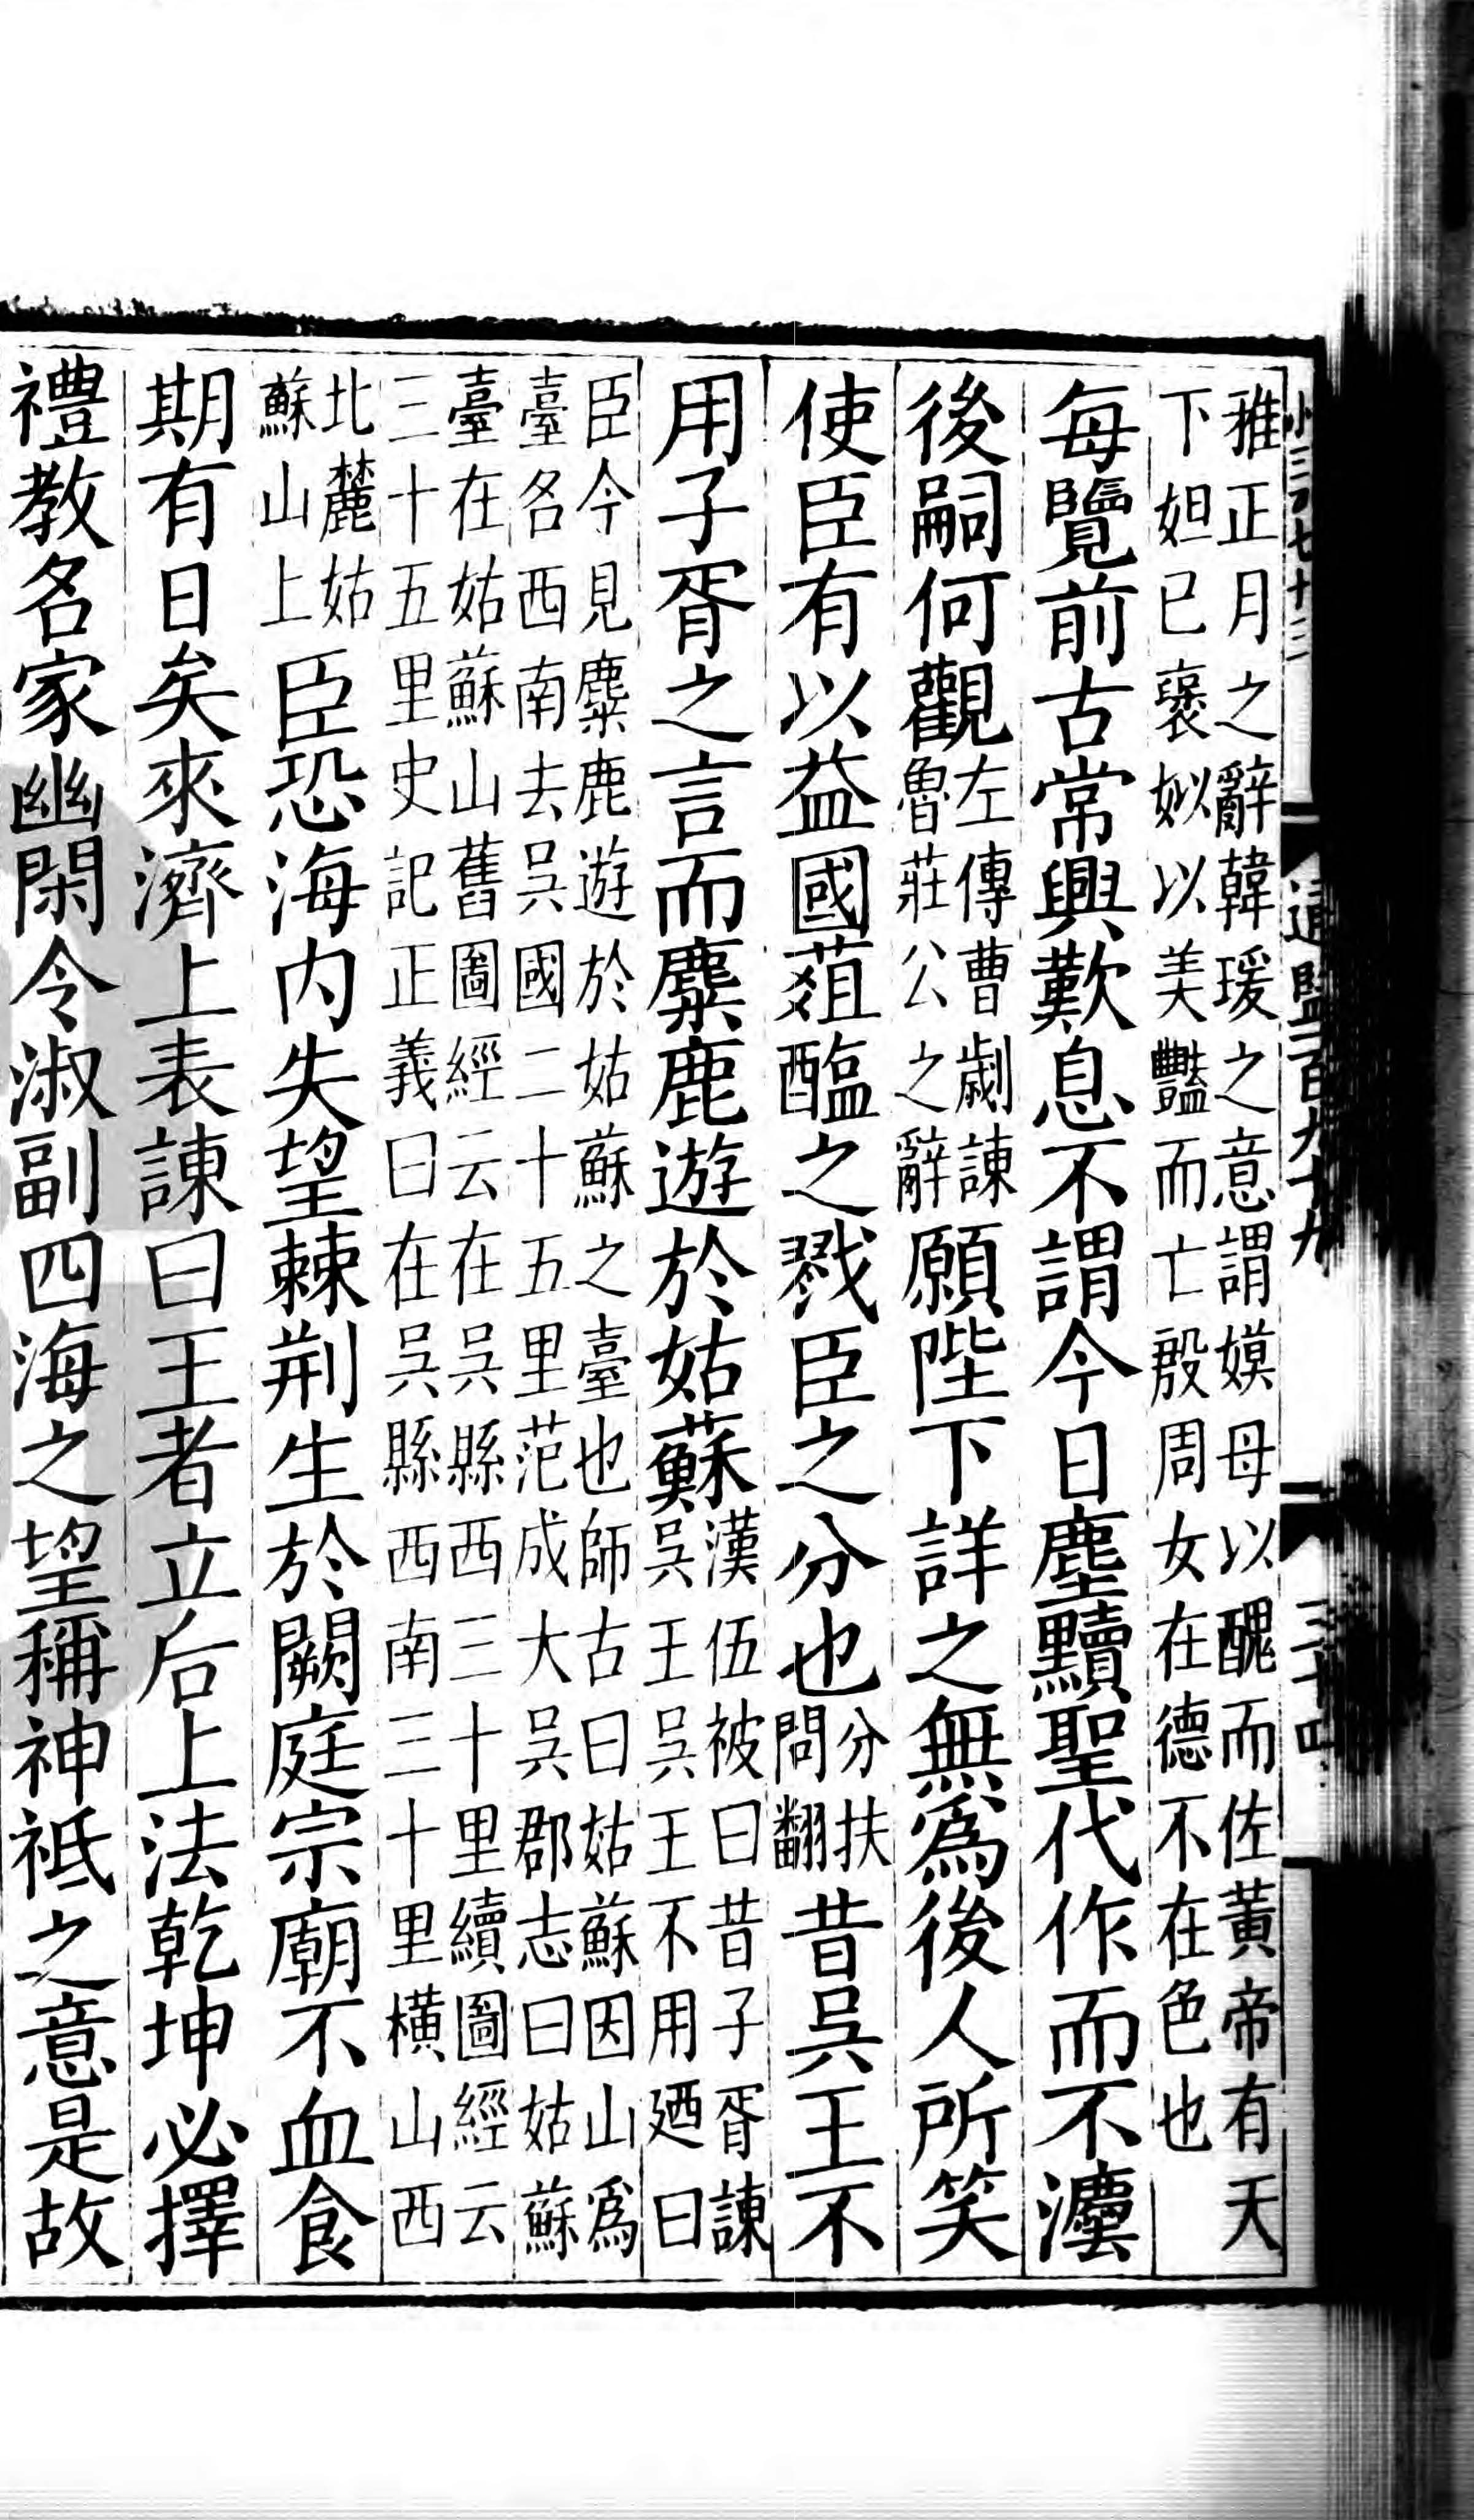 通鑑一百九十九 三十四
雅正月之辭韓瑗之意謂嫫母以醜而佐黃帝有天
下妲已褒姒以美豔而亡殷周女在德不在色也
每覽前古常興歎息不謂今日塵黷聖代作而不灋
後嗣何觀左傳曹劌諫魯莊公之辭願陛下詳之無爲後人所笑
使臣有以益國葅醢之戮臣之分也分扶問翻昔吳王不
用子胥之言而麋鹿遊於姑蘇漢伍被曰昔子胥諫吳王吳王不用廼曰
臣今見麋鹿遊於姑蘇之臺也師古曰姑蘇因山爲
臺名西南去吳國二十五里范成大吳郡志曰姑蘇
臺在姑蘇山舊圖經云在吳縣西三十里續圖經云
三十五里史記正義曰在吳縣西南三十里橫山西
北麓姑蘇山上臣恐海内失望棘荆生於闕庭宗廟不血食
期有日矣來濟上表諫曰王者立后上法乾坤必擇
禮教名家幽閑令淑副四海之望稱神祇之意是故